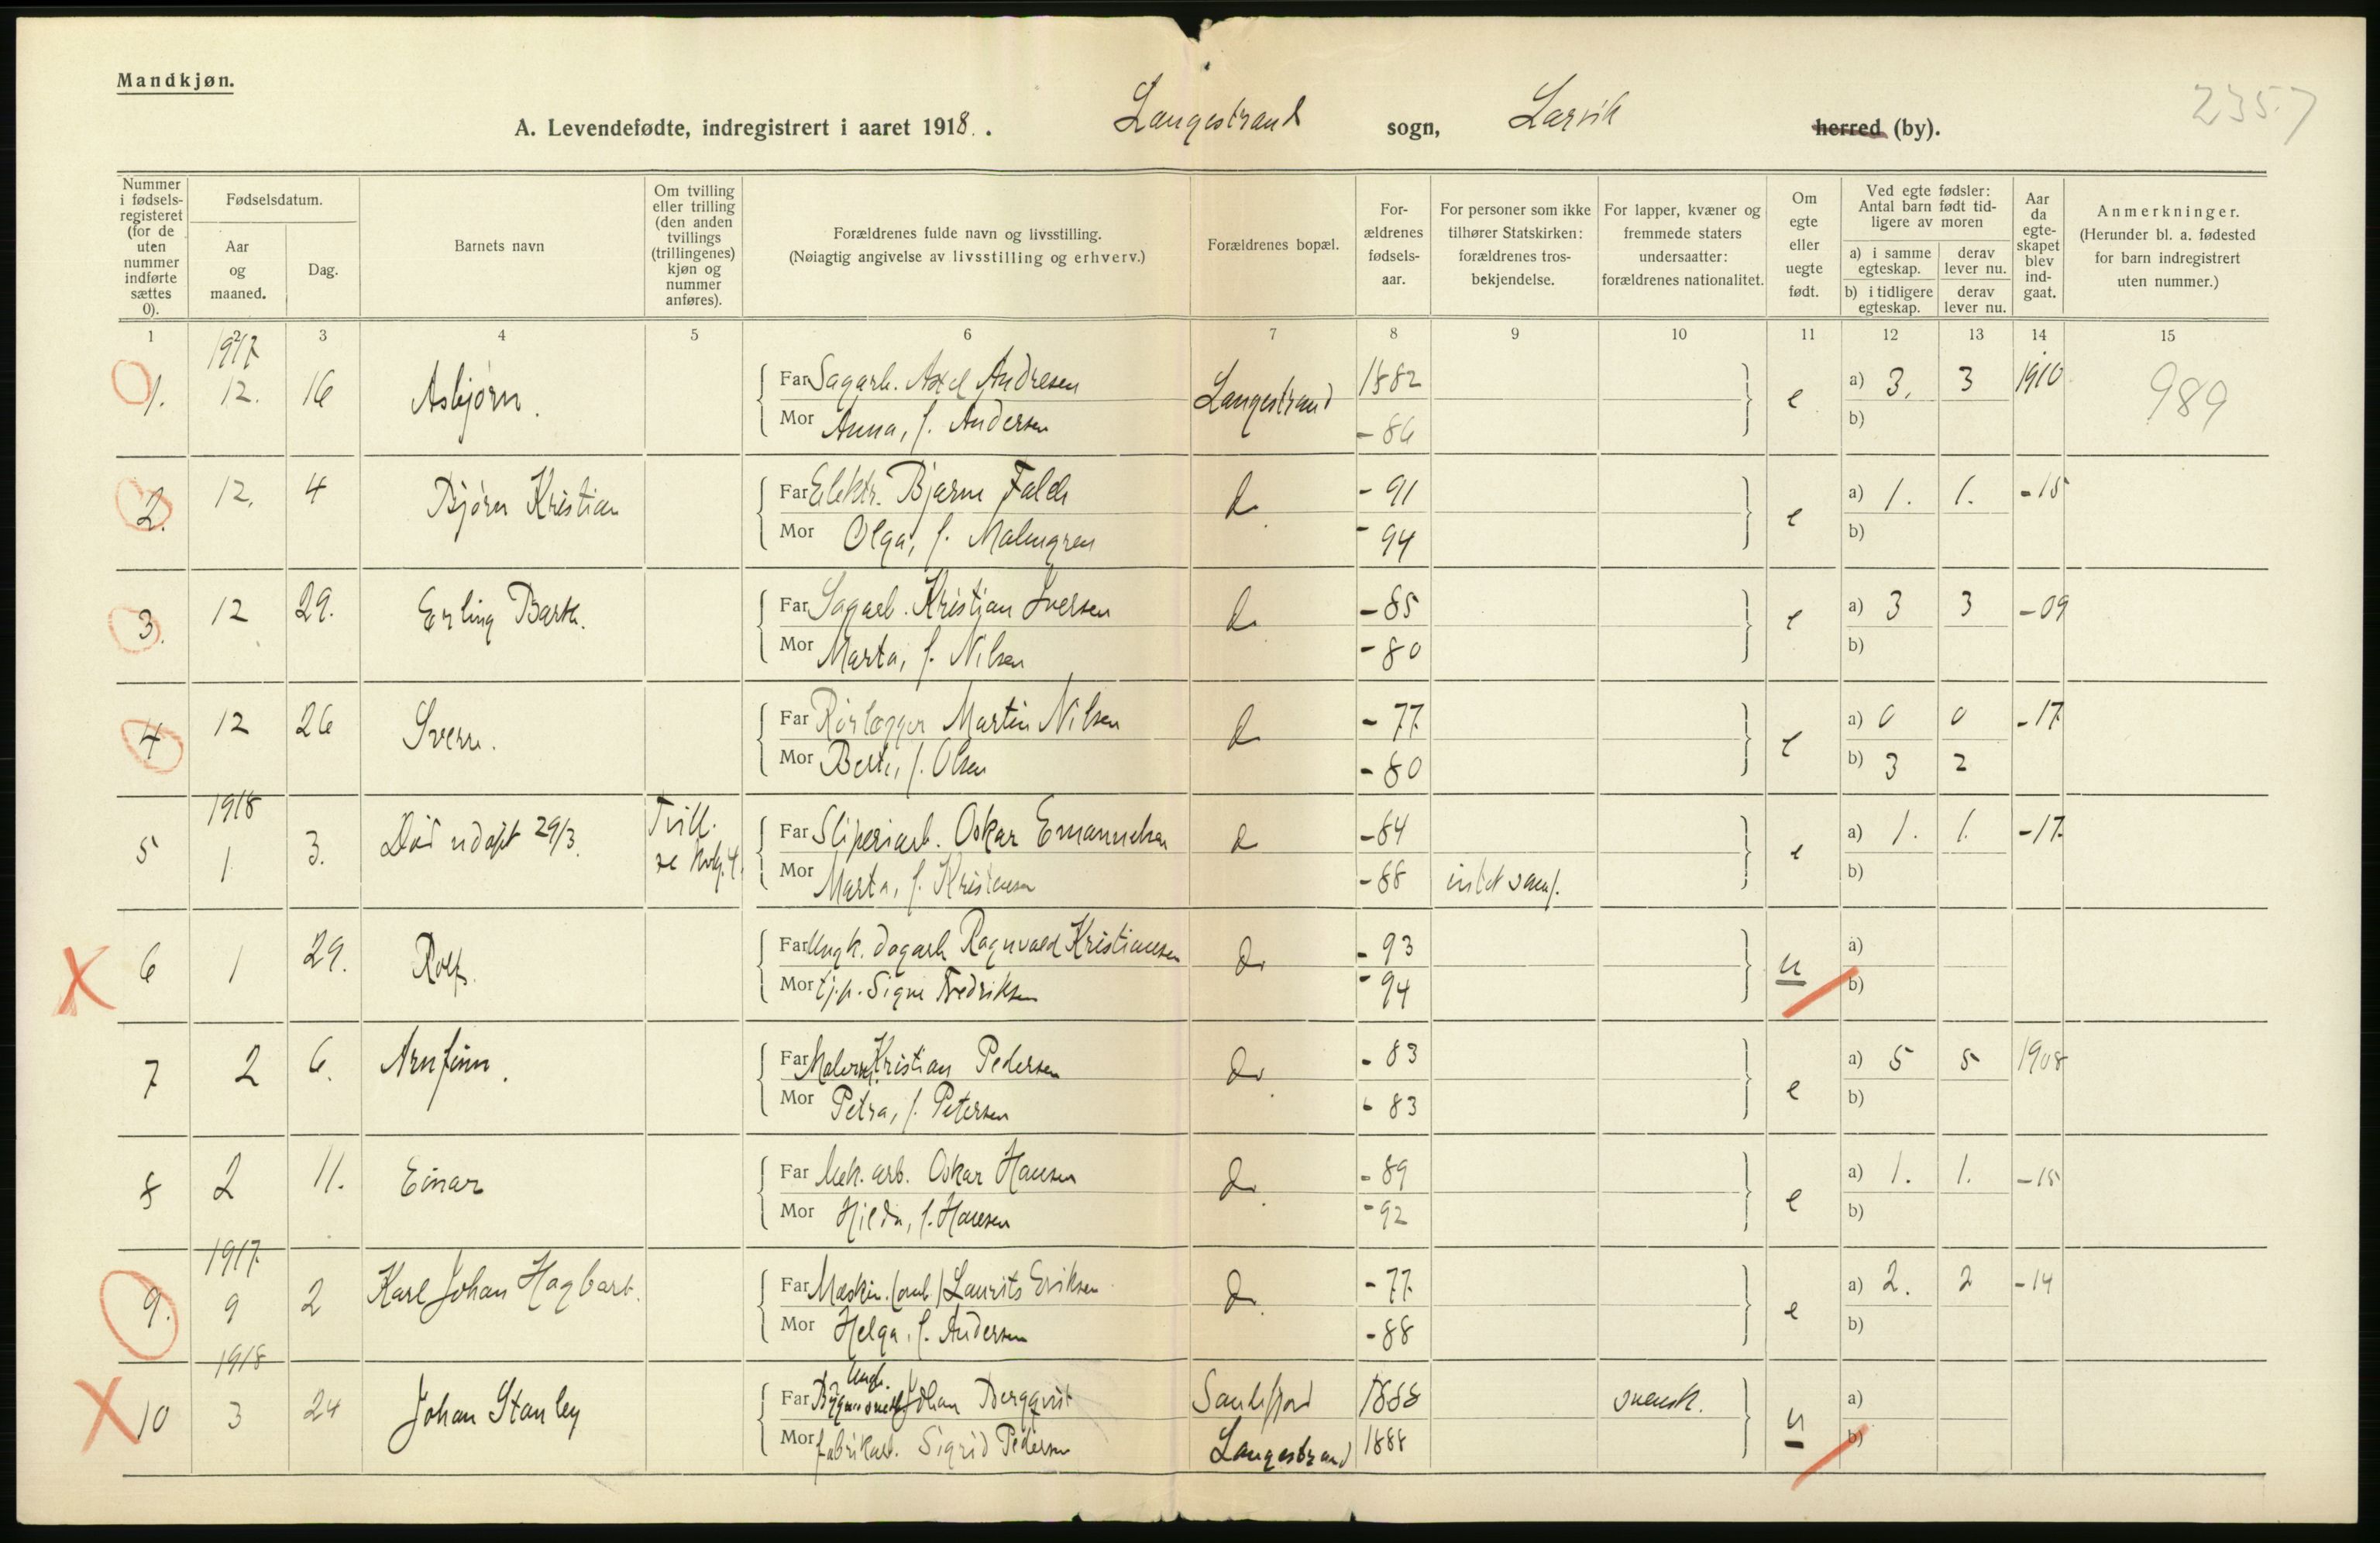 Mandkjøn.
2357
A. Levendefødte, indregistrert i aaret 1918. . Langestrand sogn, Larvik herred (by).
Nummer i fødsels-registeret (for de uten nummer indførte sættes 0).
Fødselsdatum.
Aar og maaned.
Dag.
Barnets navn
Om tvilling eller trilling (den anden tvillings (trillingenes) kjøn og nummer anføres).
Forældrenes fulde navn og livsstilling.
(Nøiagtig angivelse av livsstilling og erhverv.)
Forældrenes bopæl.
For-ældrenes fødsels-aar.
For personer som ikke tilhører Statskirken: forældrenes tros-bekjendelse.
For lapper, kvæner og fremmede staters undersaatter: forældrenes nationalitet.
Om egte eller uegte født.
Ved egte fødsler: Antal barn født tid-ligere av moren
a) i samme egteskap. derav lever nu.
b) i tidligere egteskap. derav lever nu.
Aar da egte-skapet blev ind-gaat.
Anmerkninger.
(Herunder bl. a. fødested for barn indregistrert uten nummer.)
1 2 3 4 5 6 7 8 9 10 11 12 13 14 15
1917
1. 12. 16 Asbjørn. Far Sagarb. Axel Andresen Langestrand 1882 e a) 3. 3 1910 989
Mor Anna, f. Andersen - 86 b)
2. 12. 4 Bjørn Kristian Far Elektr. Bjarne Falch do - 91 e a) 1. 1. - 15
Mor Olga, f. Malmgren - 94 b)
3. 12 29. Erling Barth. Far Sagarb. Kristian Iversen do - 85 e a) 3 3 - 09
Mor Marta, f. Nilsen - 80 b)
4 12 26 Sverre. Far Rørlægger Martin Nilsen do - 77 e a) 0 0 - 17
Mor Berta, f. Olsen - 80 b) 3 2
1918
5 1 3. Død udøpt 29/3. Tvill. se kvkj. 4. Far Sliperiarb. Oskar Emanuelsen do - 84 e a) 1. 1. - 17
Mor Marta, f. Kristensen - 88 intet samf. b)
6 1 29. Rolf. Far Ungk. dagarb. Ragnvald Kristiansen do - 93 u a)
Mor tj.p. Signe Fredriksen - 94 b)
7 2 6. Arnfinn. Far Malerm. Kristian Pedersen do - 83 e a) 5 5 1908
Mor Petra, f. Petersen - 83 b)
8 2 11. Einar Far Mek. arb. Oskar Hansen do - 89 e a) 1. 1. - 15
Mor Hilda, f. Hansen - 92 b)
1917
9. 9 2 Karl Johan Hagbart. Far Maskin. (omb.) Laurits Eriksen do - 77 e a) 2. 2 - 14
Mor Helga, f. Andersen - 88 b)
1918
10 3 24 Johan Stanley Ungk.
Far Johan Bergqvist Sandefjord 1888 svensk. u a)
Mor fabrikarb. Sigrid Pedersen Langestrand 1888 b)